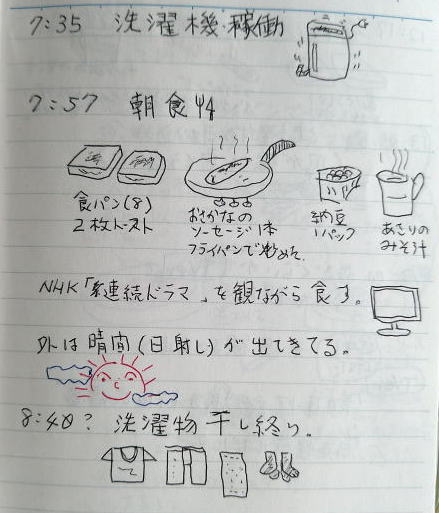 7:35 洗濯機稼働
7:57 朝食
食パン(8)
2枚トースト
おさかなの
ソーセージ1本
フライパンで炒めた.
納豆
1パック
あさりの
みそ汁
NHK「連続ドラマ」を観ながら食す。
外は晴間(日射し)が出てきてる。
8:40? 洗濯物干し終り。